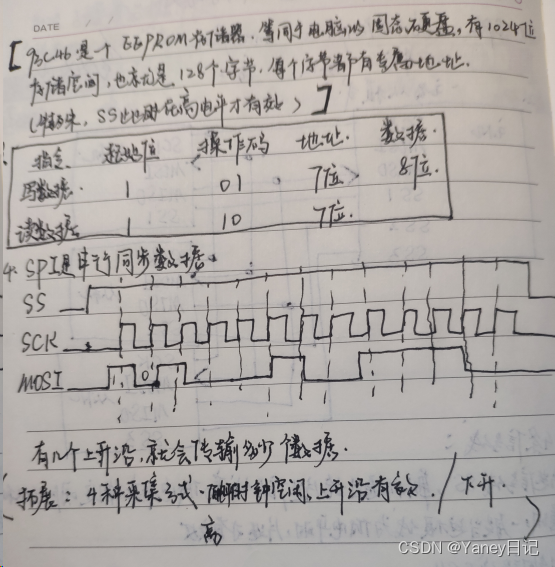 DATE
【93C46是一个EEPROM存储器,等同于电脑的固态硬盘,有1024位
存储空间,也就是128个字节,每个字节都有专属地址.
(特殊,SS也必须在高电平才有效)】
指定 起始位 操作码 地址 数据
写数据 1 01 7位 8位
读数据 1 10 7位
4. SPI是串行同步数据
SS
SCK
MOSI 0
有几个上升沿,就会传输多少个数据.
拓展:4种采集方式 时钟空闲,上升沿有效 / 下升
高
CSDN @Yaney日记